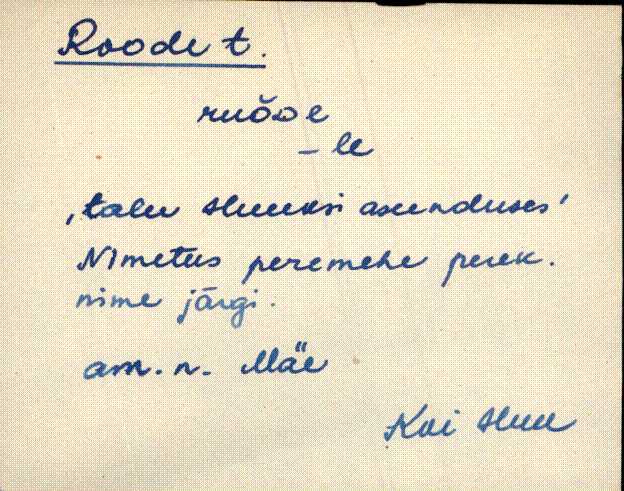 Roode t.
ruŏDe
– le
‚talu Huuksi asunduses'
Nimetus peremehe perek.
nime järgi.
am. n. Mäe
Kai Huu